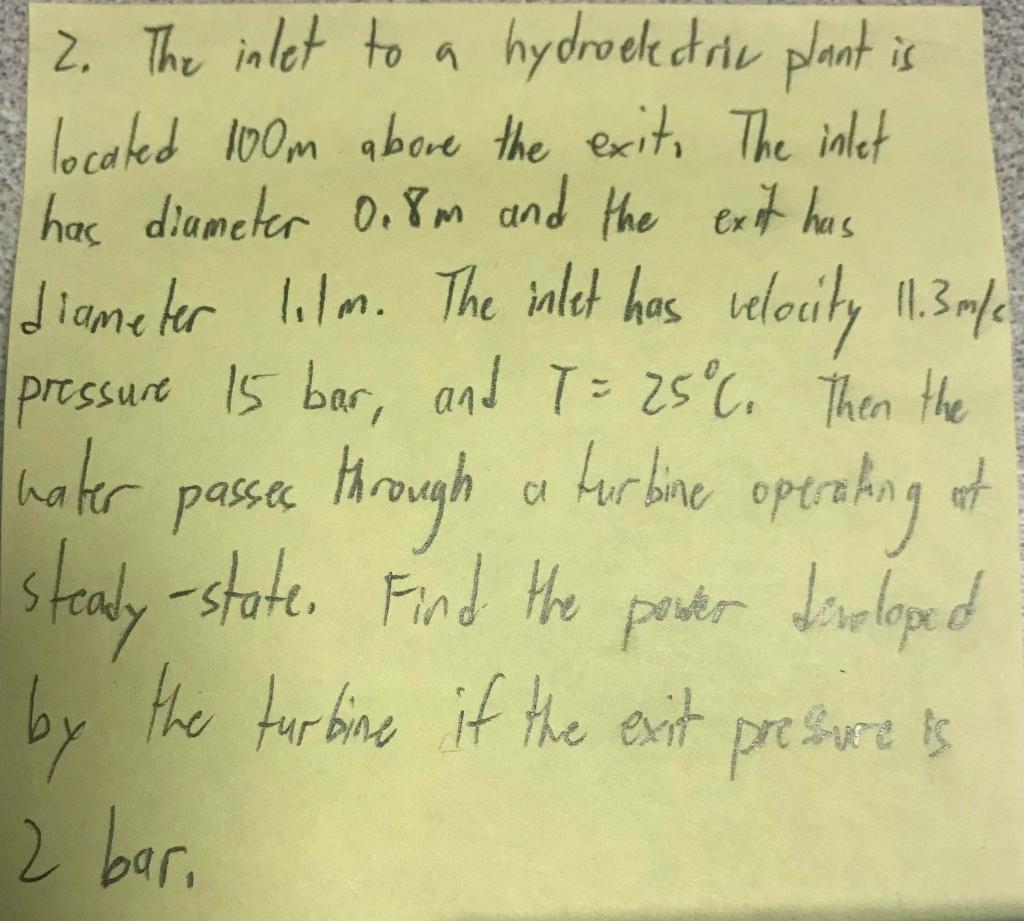 2. The inlet to a hydroelectric plant is
located 100m above the exit. The inlet
has diameter 0.8m and the exit has
diameter 1.1m. The inlet has velocity 11.3 m/s
pressure 15 bar, and T = 25°C. Then the
water passes through a turbine operating at
steady-state. Find the power developed
by the turbine if the exit pressure is
2 bar.